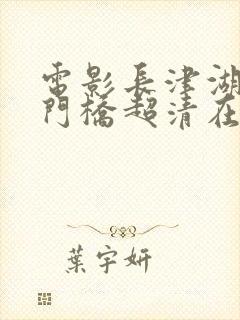 電影長津湖
門橋超清在
葉宇妍